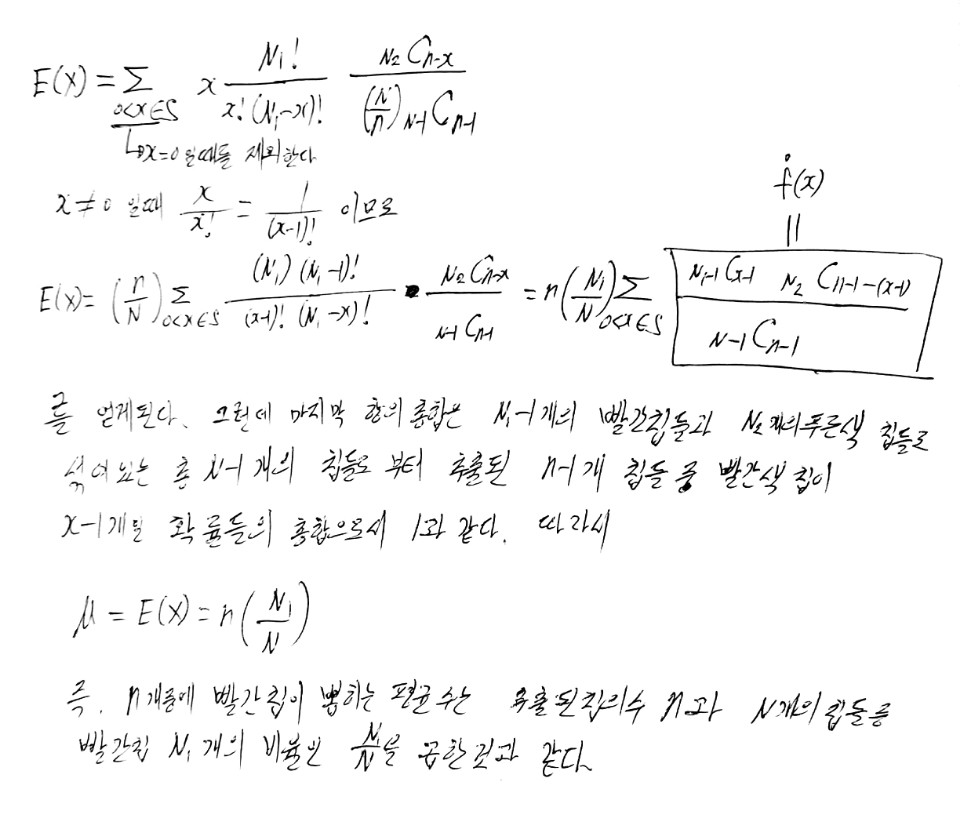 E(X) = Σ_{0<x∈S} x N₁!/(x!(N₁-x)!) N₂Cn-x/((N/n) N-1Cn-1)
↳ x=0 일때를 제외한다
x≠0 일때 x/x! = 1/(x-1)! 이므로
f(x)
||
E(x) = (n/N) Σ_{0<x∈S} (N₁)(N₁-1)!/((x-1)!(N₁-x)!) • N₂Cn-x/N-1Cn-1 = n(N₁/N) Σ_{0<x∈S} N₁-1Cx-1 N₂Cn-1-(x-1)/N-1Cn-1
를 얻게된다. 그런데 마지막 항의 총합은 N₁-1개의 빨간칩들과 N₂개의 푸른색 칩들로
섞여 있는 총 N-1개의 칩들로 부터 추출된 n-1개 칩들 중 빨간색 칩이
x-1개일 확률들의 총합으로서 1과 같다. 따라서
μ = E(X) = n(N₁/N)
즉, n개중에 빨간칩이 뽑히는 평균 수는 추출된칩의수 n과 N개의 칩들중
빨간칩 N₁개의 비율인 N₁/N을 곱한것과 같다.